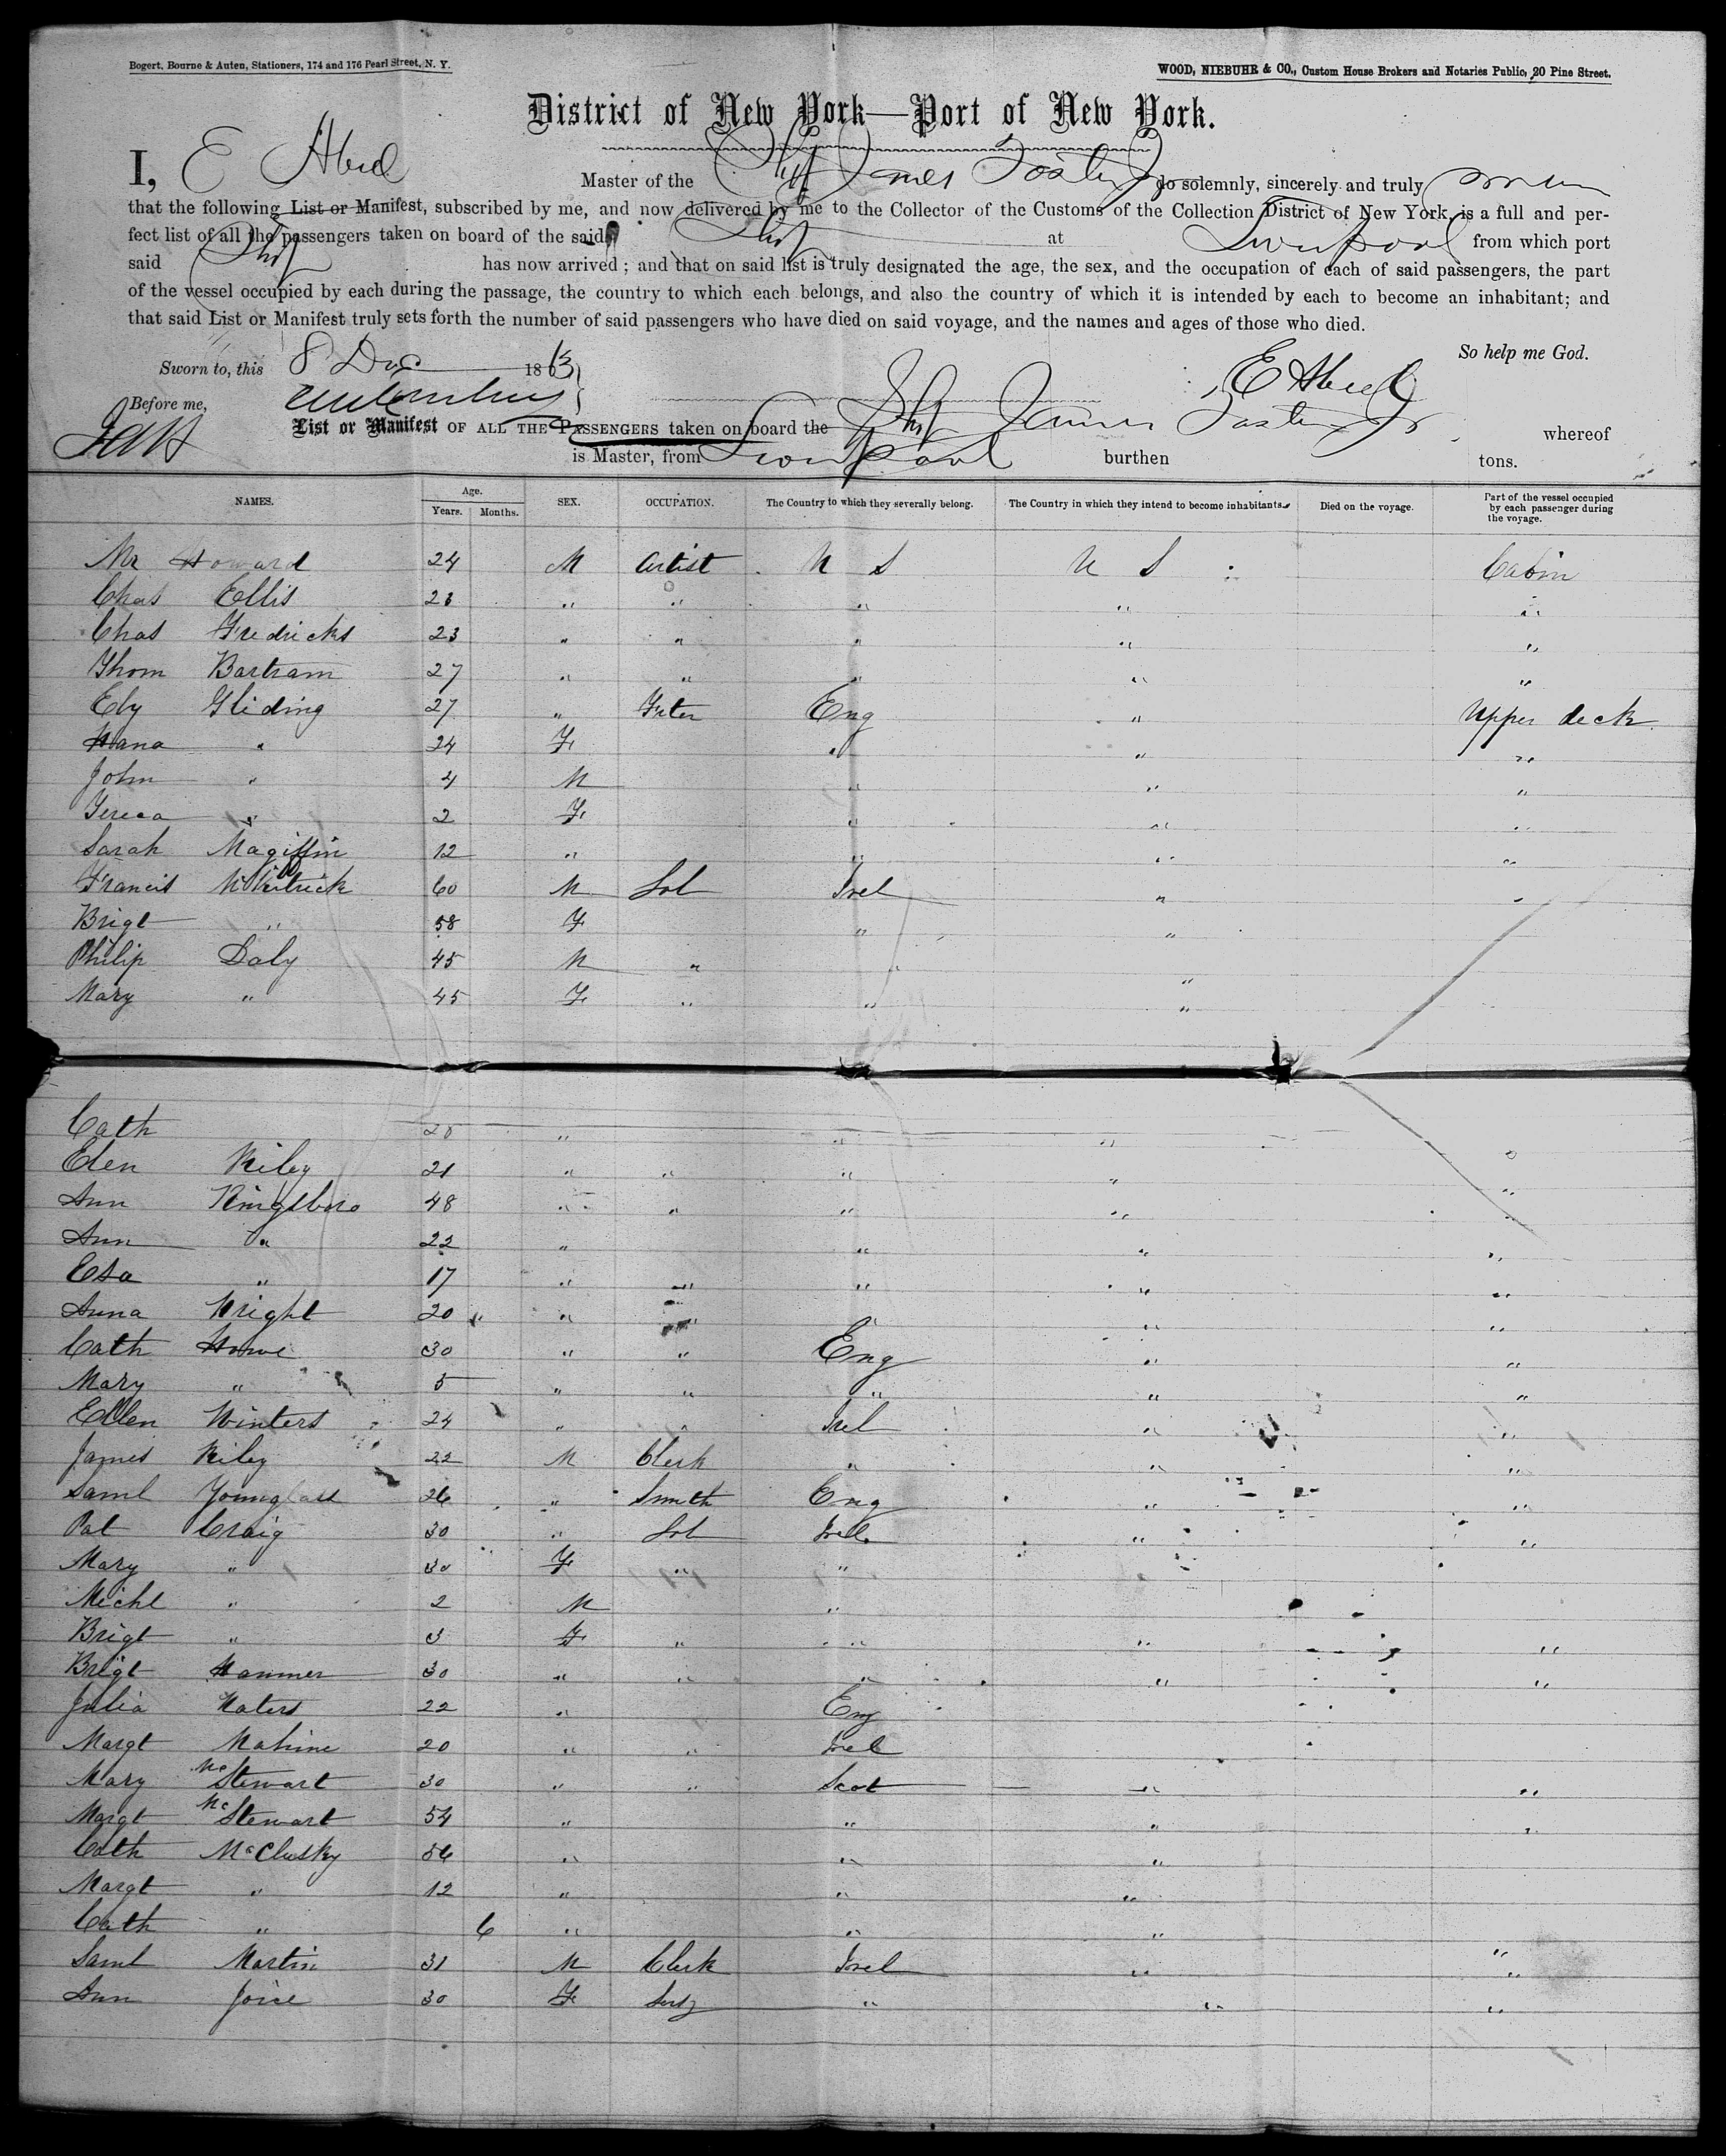 Bogert, Bourne & Auten, Stationers, 174 and 176 Pearl Street, N. Y.
WOOD, NIEBUHR & CO., Custom House Brokers and Notaries Public, 20 Pine Street.
District of New York—Port of New York.
I, E Abeel Master of the Ship James Foster Jr do solemnly, sincerely and truly swear
that the following List or Manifest, subscribed by me, and now delivered by me to the Collector of the Customs of the Collection District of New York, is a full and per-
fect list of all the passengers taken on board of the said Ship at Liverpool from which port
said Ship has now arrived; and that on said list is truly designated the age, the sex, and the occupation of each of said passengers, the part
of the vessel occupied by each during the passage, the country to which each belongs, and also the country of which it is intended by each to become an inhabitant; and
that said List or Manifest truly sets forth the number of said passengers who have died on said voyage, and the names and ages of those who died.
So help me God.
Sworn to, this 8 Dec 1863
E Abeel
Before me,
List or Manifest OF ALL THE PASSENGERS taken on board the Ship James Foster Jr whereof
is Master, from Liverpool burthen tons.
NAMES. Age. Years. Months. SEX. OCCUPATION. The Country to which they severally belong. The Country in which they intend to become inhabitants. Died on the voyage. Part of the vessel occupied by each passenger during the voyage.
Mr Howard 24 M Artist U S U S Cabin
Chas Ellis 23 " " " " "
Chas Fredricks 23 " " " " "
Thom Bartram 27 " " " " "
Eby Gliding 27 " Eng " Upper deck
Hana " 24 F " " "
John " 4 M " " "
Teresa " 2 F " " "
Sarah Magiffin 12 " " " "
Francis McKitrick 60 M Lab Irel " "
Brigt " 58 F " "
Philip Daly 45 M " " "
Mary " 45 F " " "
Cath 20 " " "
Elen Riley 21 " " " " "
Ann Kingsboro 48 " " " " "
Ann " 22 " " " "
Esa " 17 " " " " "
Anna Wright 20 " " " " "
Cath Howe 30 " " Eng " "
Mary " 5 " " " " "
Ellen Winters 24 " " Irel " "
James Riley 22 M Clerk " " "
Saml Younglass 26 " Smith Eng " "
Pat Craig 30 " Lab Irel " "
Mary " 30 F " "
Michl " 2 M "
Brigt " 3 F " " " "
Brigt Hanmer 30 " " " " "
Julia Waters 22 " Eng
Margt Mahine 20 " " Irel
Mary McStewart 30 " " Scot " "
Margt McStewart 54 " " " "
Cath McClusky 56 " " "
Margt " 12 " " "
Cath " 6 " " "
Saml Martin 31 M Clerk Irel " "
Ann Joice 30 F " " "